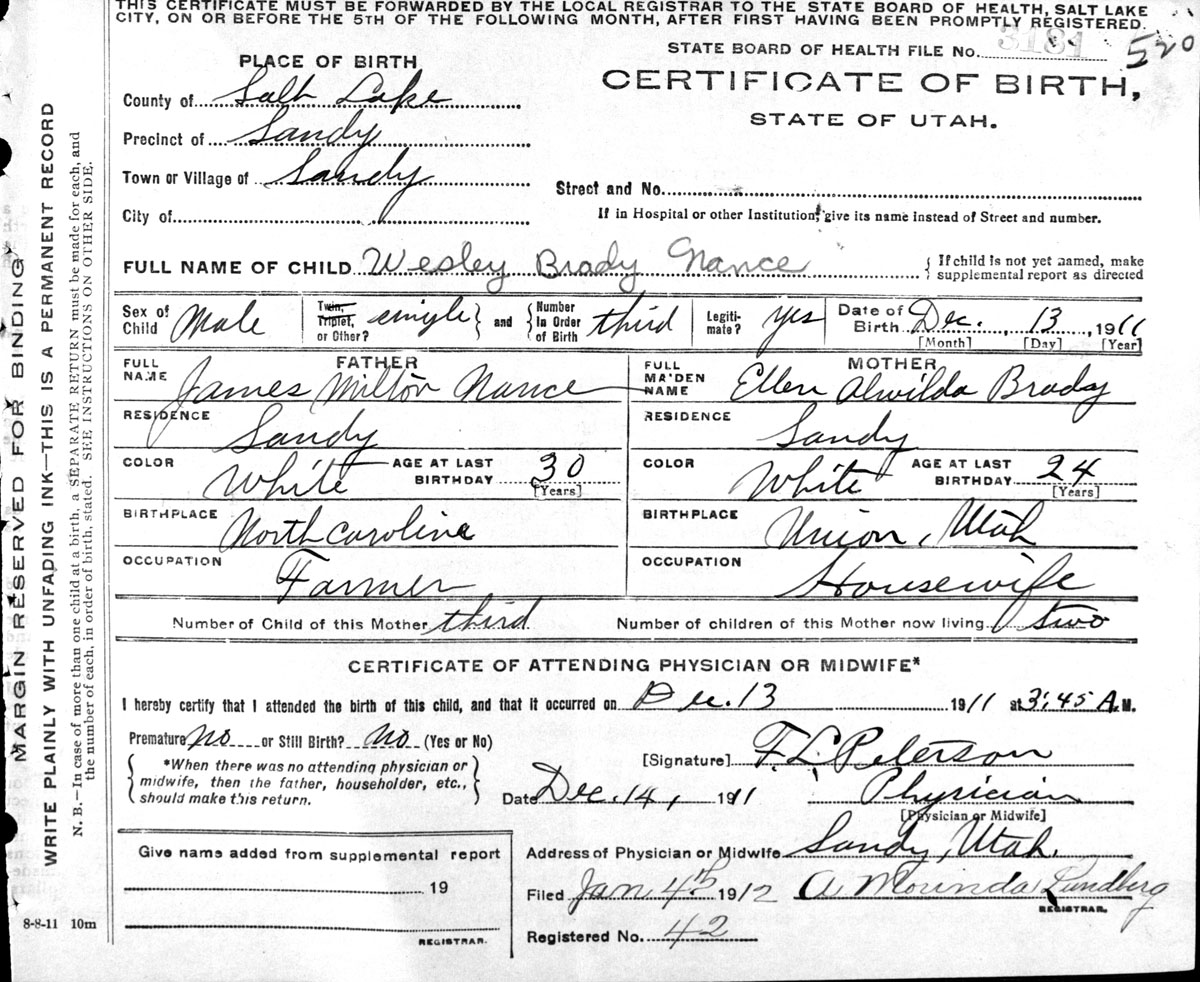 THIS CERTIFICATE MUST BE FORWARDED BY THE LOCAL REGISTRAR TO THE STATE BOARD OF HEALTH, SALT LAKE
CITY, ON OR BEFORE THE 5TH OF THE FOLLOWING MONTH, AFTER FIRST HAVING BEEN PROMPTLY REGISTERED.
STATE BOARD OF HEALTH FILE No. 3181 520
PLACE OF BIRTH
CERTIFICATE OF BIRTH,
STATE OF UTAH.
County of Salt Lake
Precinct of Sandy
Town or Village of Sandy
Street and No.
City of
If in Hospital or other Institution, give its name instead of Street and number.
FULL NAME OF CHILD Wesley Brady Nance { If child is not yet named, make
supplemental report as directed
Sex of Child Male
Twin, Triplet, or Other? single } and { Number In Order of Birth third
Legiti-mate? yes
Date of Birth Dec., 13, 1911
[Month] [Day] [Year]
FATHER
FULL NAME James Milton Nance
MOTHER
FULL MAIDEN NAME Ellen Alwilda Brady
RESIDENCE Sandy
RESIDENCE Sandy
COLOR White AGE AT LAST BIRTHDAY 30 [Years]
COLOR White AGE AT LAST BIRTHDAY 24 [Years]
BIRTHPLACE North Carolina
BIRTHPLACE Union, Utah
OCCUPATION Farmer
OCCUPATION Housewife
Number of Child of this Mother third Number of children of this Mother now living two
CERTIFICATE OF ATTENDING PHYSICIAN OR MIDWIFE*
I hereby certify that I attended the birth of this child, and that it occurred on Dec. 13 1911 at 3:45 A.M.
Premature no or Still Birth? no (Yes or No)
*When there was no attending physician or
midwife, then the father, householder, etc.,
should make this return.
[Signature] F. L. Peterson
Date Dec. 14, 1911 Physician
[Physician or Midwife]
Give name added from supplemental report
19
REGISTRAR.
Address of Physician or Midwife Sandy, Utah.
Filed Jan 4th 1912 A Morinda Lundberg
REGISTRAR.
Registered No. 42
8-8-11 10m
MARGIN RESERVED FOR BINDING
WRITE PLAINLY WITH UNFADING INK—THIS IS A PERMANENT RECORD
N. B.—In case of more than one child at a birth, a SEPARATE RETURN must be made for each, and
the number of each, in order of birth, stated. SEE INSTRUCTIONS ON OTHER SIDE.